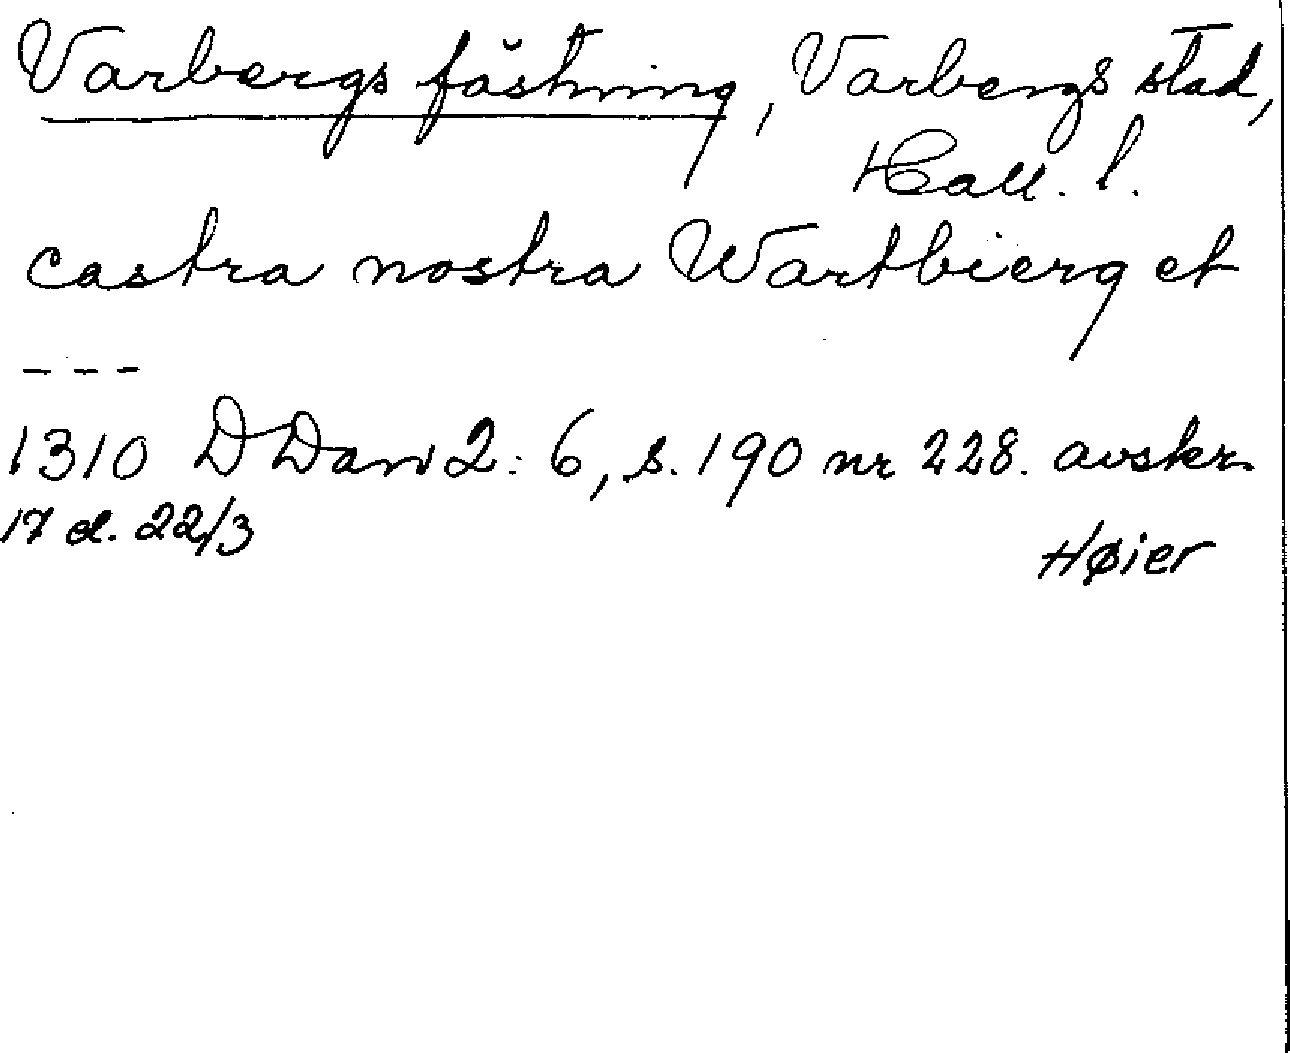 Varbergs fästning, Varbergs stad,
Hall. l.
castra nostra Wartbierg et
---
1310 DDan 2: 6, s. 190 nr 228. avskr.
17 d. 22/3
Høier